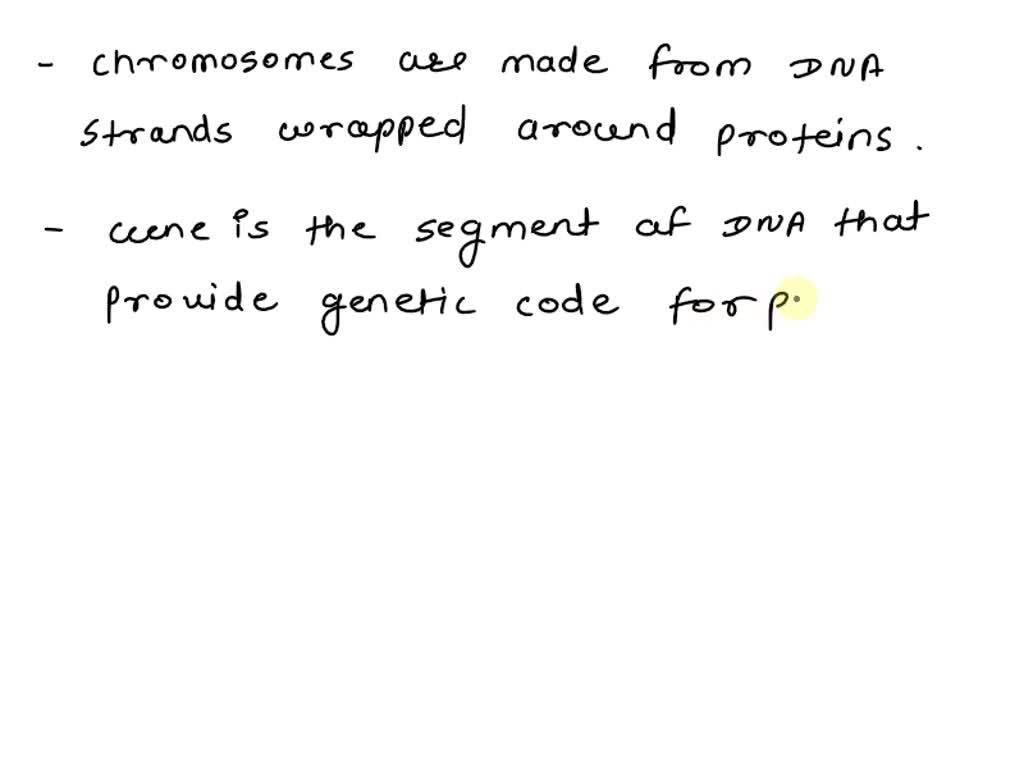 - chromosomes are made from DNA
strands wrapped around proteins.
- Gene is the segment of DNA that
provide genetic code for p